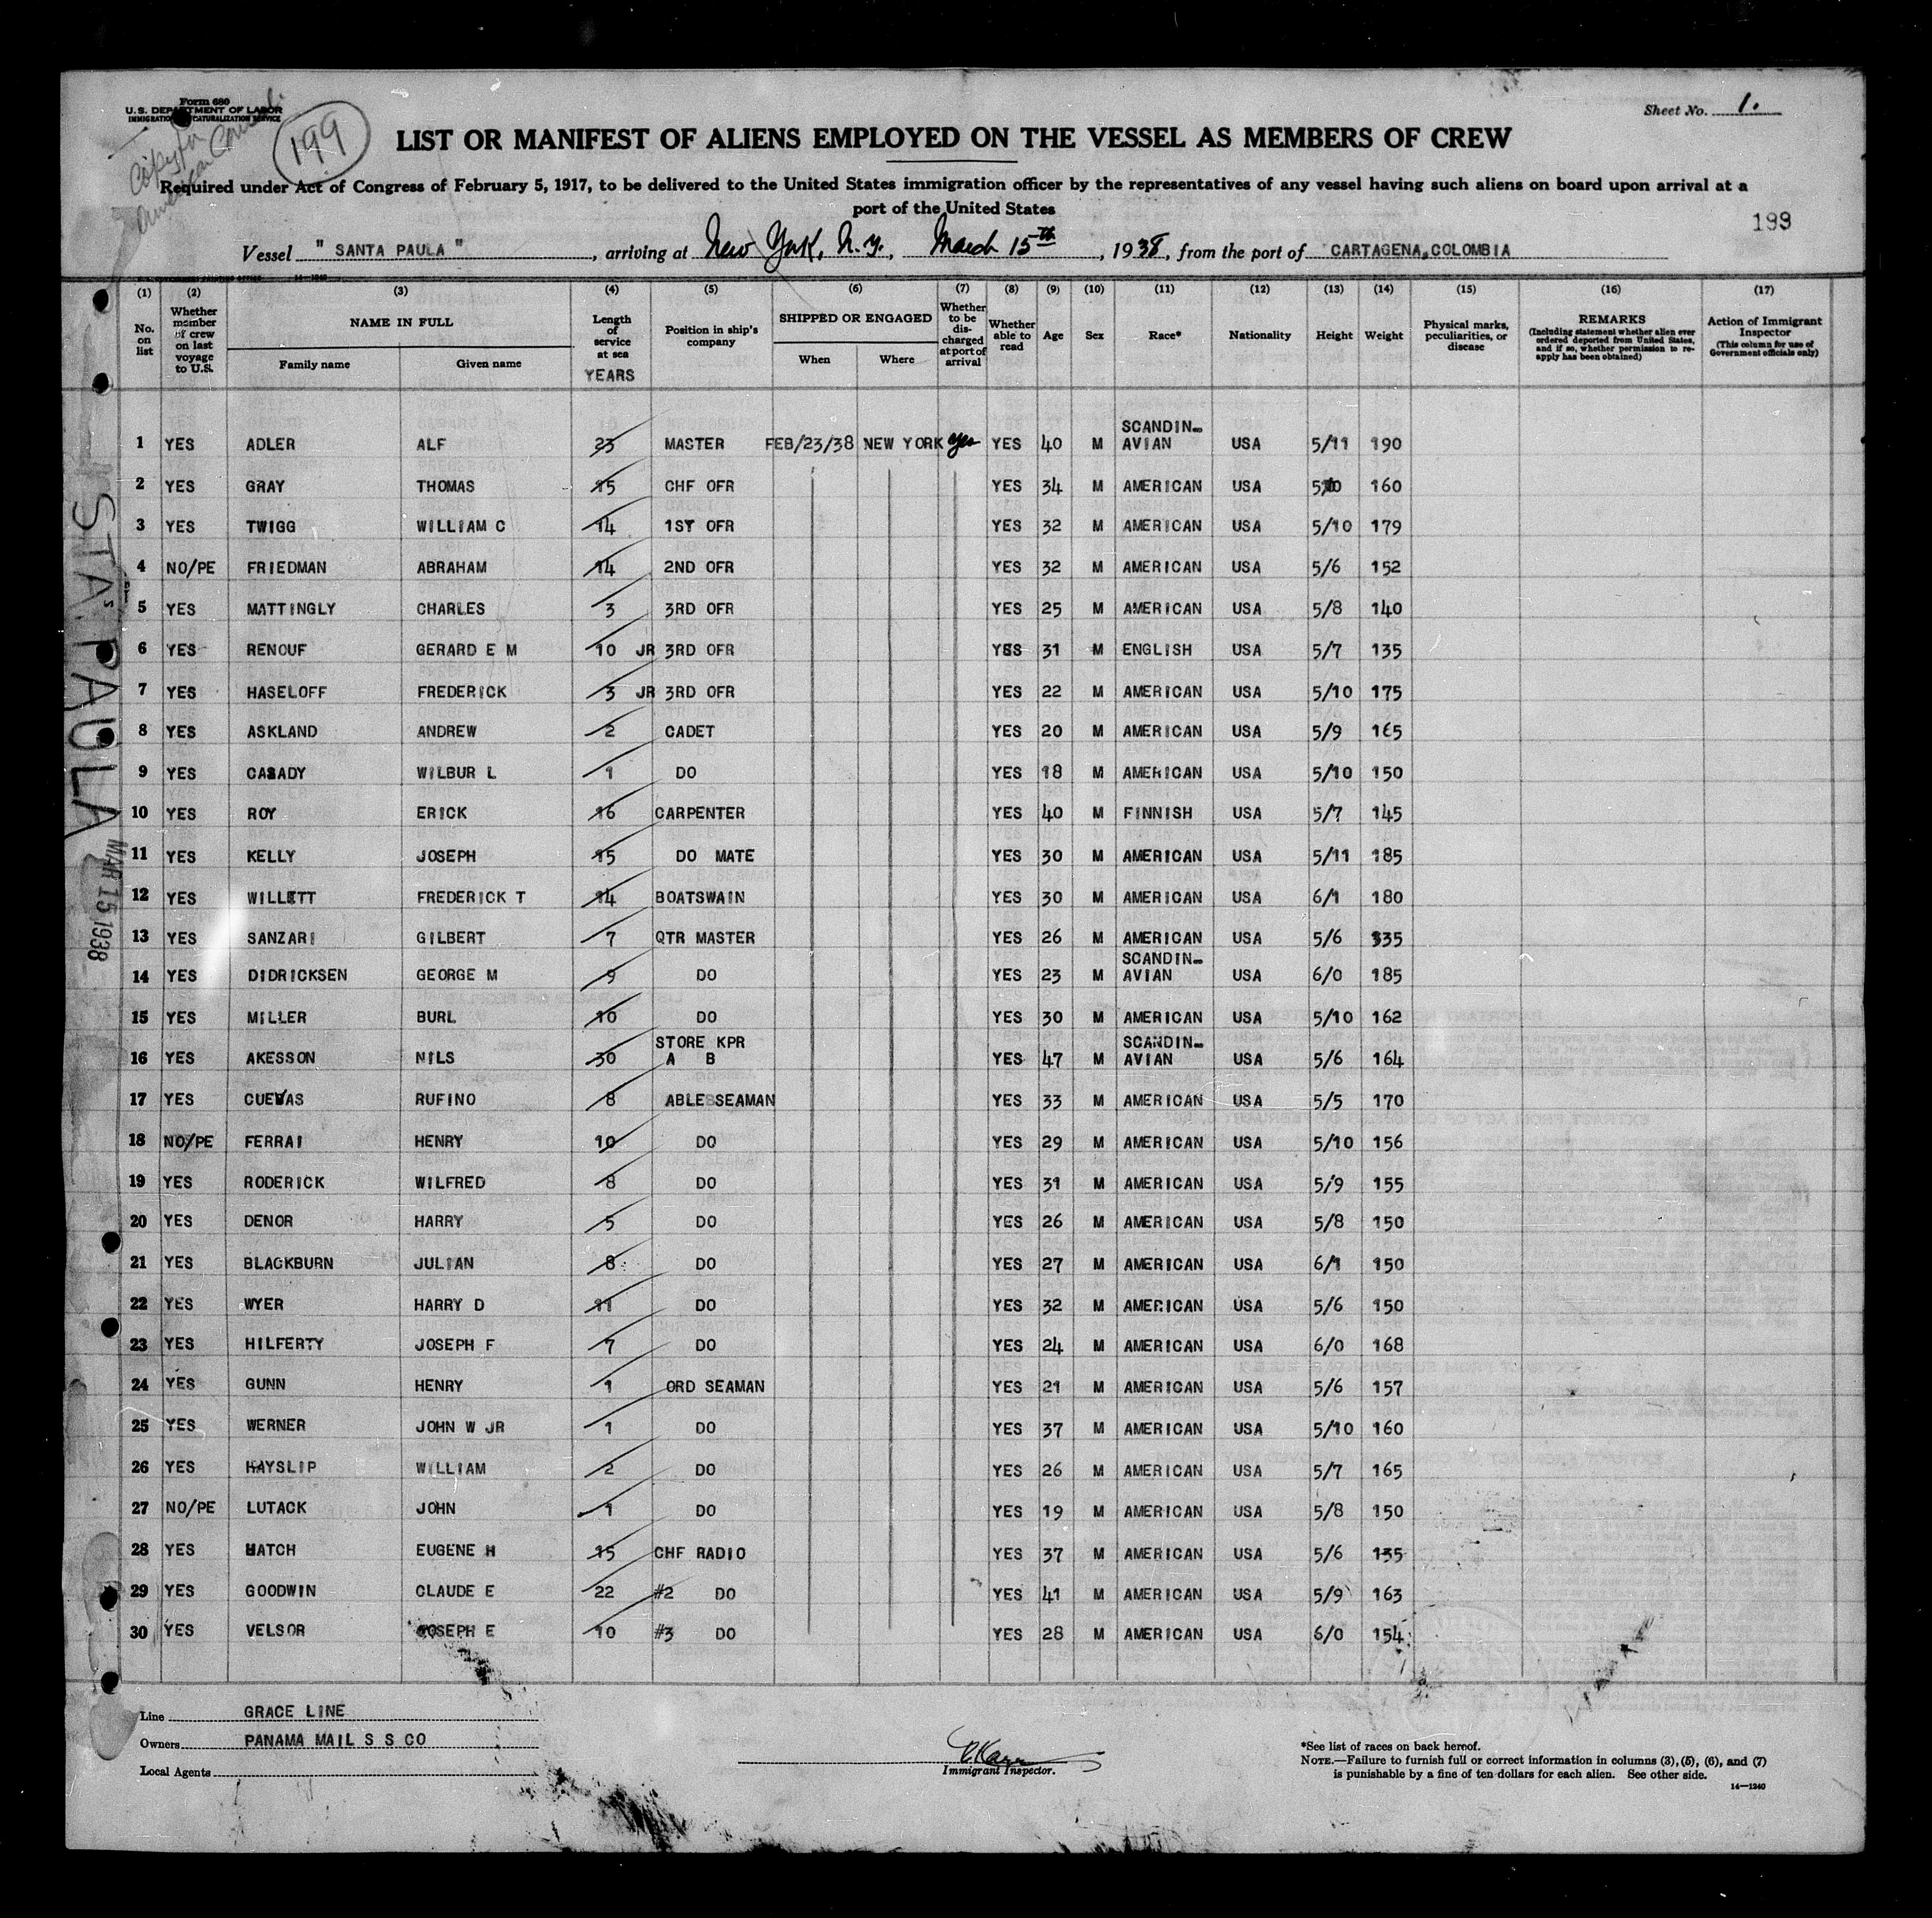 Form 680
U.S. DEPARTMENT OF LABOR
IMMIGRATION NATURALIZATION SERVICE
Copy for
American Consul.
199
Sheet No. 1.
LIST OR MANIFEST OF ALIENS EMPLOYED ON THE VESSEL AS MEMBERS OF CREW
Required under Act of Congress of February 5, 1917, to be delivered to the United States immigration officer by the representatives of any vessel having such aliens on board upon arrival at a
port of the United States
199
Vessel " SANTA PAULA " , arriving at New York, N.Y., March 15th , 1938, from the port of CARTAGENA,COLOMBIA
(1) (2) (3) (4) (5) (6) (7) (8) (9) (10) (11) (12) (13) (14) (15) (16) (17)
No. on list
Whether member of crew on last voyage to U.S.
NAME IN FULL
Family name Given name
Length of service at sea
YEARS
Position in ship's company
SHIPPED OR ENGAGED
When Where
Whether to be discharged at port of arrival
Whether able to read
Age
Sex
Race*
Nationality
Height
Weight
Physical marks, peculiarities, or disease
REMARKS
(Including statement whether alien ever ordered deported from United States, and if so, whether permission to reapply has been obtained)
Action of Immigrant Inspector
(This column for use of Government officials only)
1 YES ADLER ALF 23 MASTER FEB/23/38 NEW YORK yes YES 40 M SCANDIN-AVIAN USA 5/11 190
2 YES GRAY THOMAS 15 CHF OFR YES 34 M AMERICAN USA 5/10 160
3 YES TWIGG WILLIAM C 14 1ST OFR YES 32 M AMERICAN USA 5/10 179
4 NO/PE FRIEDMAN ABRAHAM 14 2ND OFR YES 32 M AMERICAN USA 5/6 152
5 YES MATTINGLY CHARLES 3 3RD OFR YES 25 M AMERICAN USA 5/8 140
6 YES RENOUF GERARD E M 10 JR 3RD OFR YES 31 M ENGLISH USA 5/7 135
7 YES HASELOFF FREDERICK 3 JR 3RD OFR YES 22 M AMERICAN USA 5/10 175
8 YES ASKLAND ANDREW 2 CADET YES 20 M AMERICAN USA 5/9 165
9 YES CASADY WILBUR L 1 DO YES 18 M AMERICAN USA 5/10 150
10 YES ROY ERICK 16 CARPENTER YES 40 M FINNISH USA 5/7 145
11 YES KELLY JOSEPH 15 DO MATE YES 30 M AMERICAN USA 5/11 185
12 YES WILLETT FREDERICK T 14 BOATSWAIN YES 30 M AMERICAN USA 6/1 180
13 YES SANZARI GILBERT 7 QTR MASTER YES 26 M AMERICAN USA 5/6 135
14 YES DIDRICKSEN GEORGE M 9 DO YES 23 M SCANDIN-AVIAN USA 6/0 185
15 YES MILLER BURL 10 DO YES 30 M AMERICAN USA 5/10 162
16 YES AKESSON NILS 30 STORE KPR A B YES 47 M SCANDIN-AVIAN USA 5/6 164
17 YES CUEVAS RUFINO 8 ABLE SEAMAN YES 33 M AMERICAN USA 5/5 170
18 NO/PE FERRAI HENRY 10 DO YES 29 M AMERICAN USA 5/10 156
19 YES RODERICK WILFRED 8 DO YES 31 M AMERICAN USA 5/9 155
20 YES DENOR HARRY 5 DO YES 26 M AMERICAN USA 5/8 150
21 YES BLACKBURN JULIAN 8 DO YES 27 M AMERICAN USA 6/1 150
22 YES WYER HARRY D 11 DO YES 32 M AMERICAN USA 5/6 150
23 YES HILFERTY JOSEPH F 7 DO YES 24 M AMERICAN USA 6/0 168
24 YES GUNN HENRY 1 ORD SEAMAN YES 21 M AMERICAN USA 5/6 157
25 YES WERNER JOHN W JR 1 DO YES 37 M AMERICAN USA 5/10 160
26 YES HAYSLIP WILLIAM 2 DO YES 26 M AMERICAN USA 5/7 165
27 NO/PE LUTACK JOHN 1 DO YES 19 M AMERICAN USA 5/8 150
28 YES HATCH EUGENE H 15 CHF RADIO YES 37 M AMERICAN USA 5/6 135
29 YES GOODWIN CLAUDE E 22 #2 DO YES 41 M AMERICAN USA 5/9 163
30 YES VELSOR JOSEPH E 10 #3 DO YES 28 M AMERICAN USA 6/0 154
STA. PAULA
MAR 15 1938
Line GRACE LINE
Owners PANAMA MAIL S S CO
Local Agents
Immigrant Inspector.
*See list of races on back hereof.
NOTE.—Failure to furnish full or correct information in columns (3), (5), (6), and (7)
is punishable by a fine of ten dollars for each alien. See other side.
14—1240